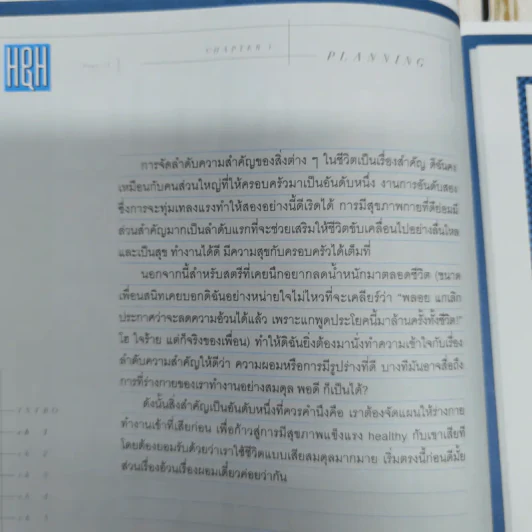 H&H
CHAPTER 1
PLANNING
การจัดลำดับความสำคัญของสิ่งต่าง ๆ ในชีวิตเป็นเรื่องสำคัญ ดิฉันคง
เหมือนกับคนส่วนใหญ่ที่ให้ครอบครัวมาเป็นอันดับหนึ่ง งานการอันดับสอง
ซึ่งการจะทุ่มเทลงแรงทำให้สองอย่างนี้ดีเริดได้ การมีสุขภาพกายที่ดีย่อมมี
ส่วนสำคัญมากเป็นลำดับแรกที่จะช่วยเสริมให้ชีวิตขับเคลื่อนไปอย่างลื่นไหล
และเป็นสุข ทำงานได้ดี มีความสุขกับครอบครัวได้เต็มที่
นอกจากนี้สำหรับสตรีที่เคยนึกอยากลดน้ำหนักมาตลอดชีวิต (ขนาด
เพื่อนสนิทเคยบอกดิฉันอย่างหน่ายใจไม่ไหวที่จะเคลียร์ว่า "พลอย แกเลิก
ประกาศว่าจะลดความอ้วนได้แล้ว เพราะแกพูดประโยคนี้มาล้านครั้งทั้งชีวิต!!"
โฮ ใจร้าย แต่ก็จริงของเพื่อน) ทำให้ดิฉันยิ่งต้องมานั่งทำความเข้าใจกับเรื่อง
ลำดับความสำคัญให้ดีว่า ความผอมหรือการมีรูปร่างที่ดี บางทีมันอาจสื่อถึง
การที่ร่างกายของเราทำงานอย่างสมดุล พอดี ก็เป็นได้?
ดังนั้นสิ่งสำคัญเป็นอันดับหนึ่งที่ควรคำนึงคือ เราต้องจัดแผนให้ร่างกาย
ทำงานเข้าที่เสียก่อน เพื่อก้าวสู่การมีสุขภาพแข็งแรง healthy กับเขาเสียที
โดยต้องยอมรับด้วยว่าเราใช้ชีวิตแบบเสียสมดุลมากมาย เริ่มตรงนี้ก่อนดีมั้ย
ส่วนเรื่องอ้วนเรื่องผอมเดี๋ยวค่อยว่ากัน
INTRO
ch 1